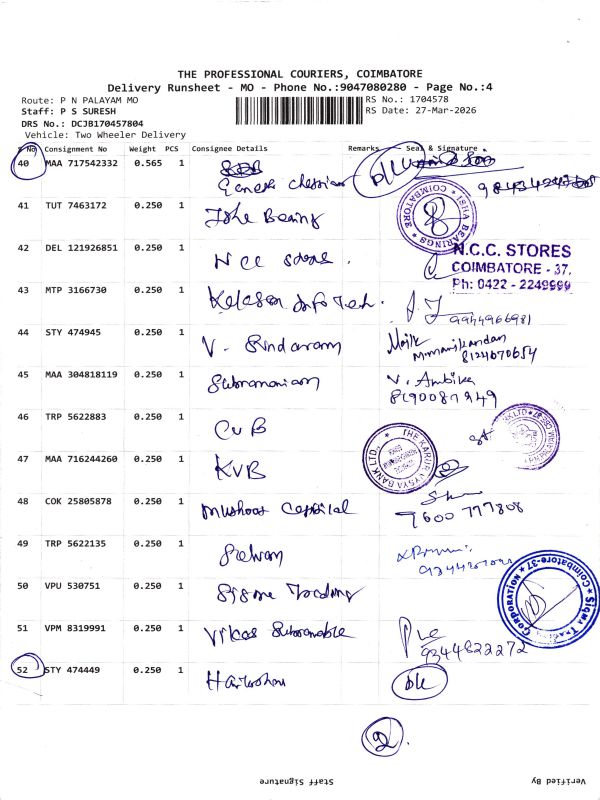 THE PROFESSIONAL COURIERS, COIMBATORE
Delivery Runsheet - MO - Phone No.:9047080280 - Page No.:4
Route: P N PALAYAM MO
Staff: P S SURESH
DRS No.: DCJB170457804
Vehicle: Two Wheeler Delivery
RS No.: 1704578
RS Date: 27-Mar-2026
S No Consignment No Weight PCS Consignee Details Remarks Seal & Signature
40 MAA 717542332 0.565 1 Ganesh
41 TUT 7463172 0.250 1 Isha Bearing
ISHA BEARINGS * COIMBATORE *
42 DEL 121926851 0.250 1 NCC stores.
N.C.C. STORES
COIMBATORE - 37.
Ph: 0422 - 2249999
43 MTP 3166730 0.250 1 Info Tech.
9944966981
44 STY 474945 0.250 1 V. Sundaram
M.manikandan
8124670654
45 MAA 304818119 0.250 1 Subramaniam
V. Ambika
8190087949
46 TRP 5622883 0.250 1 CUB
47 MAA 716244260 0.250 1 KVB
THE KARUR VYSYA BANK LTD.
48 COK 25805878 0.250 1 Capital
7600 777808
49 TRP 5622135 0.250 1 Selvam
50 VPU 530751 0.250 1 Sigma Trading
CORPORATION * Coimbatore-37 *
51 VPM 8319991 0.250 1 Vikas
9344822272
52 STY 474449 0.250 1
Staff Signature
Verified By